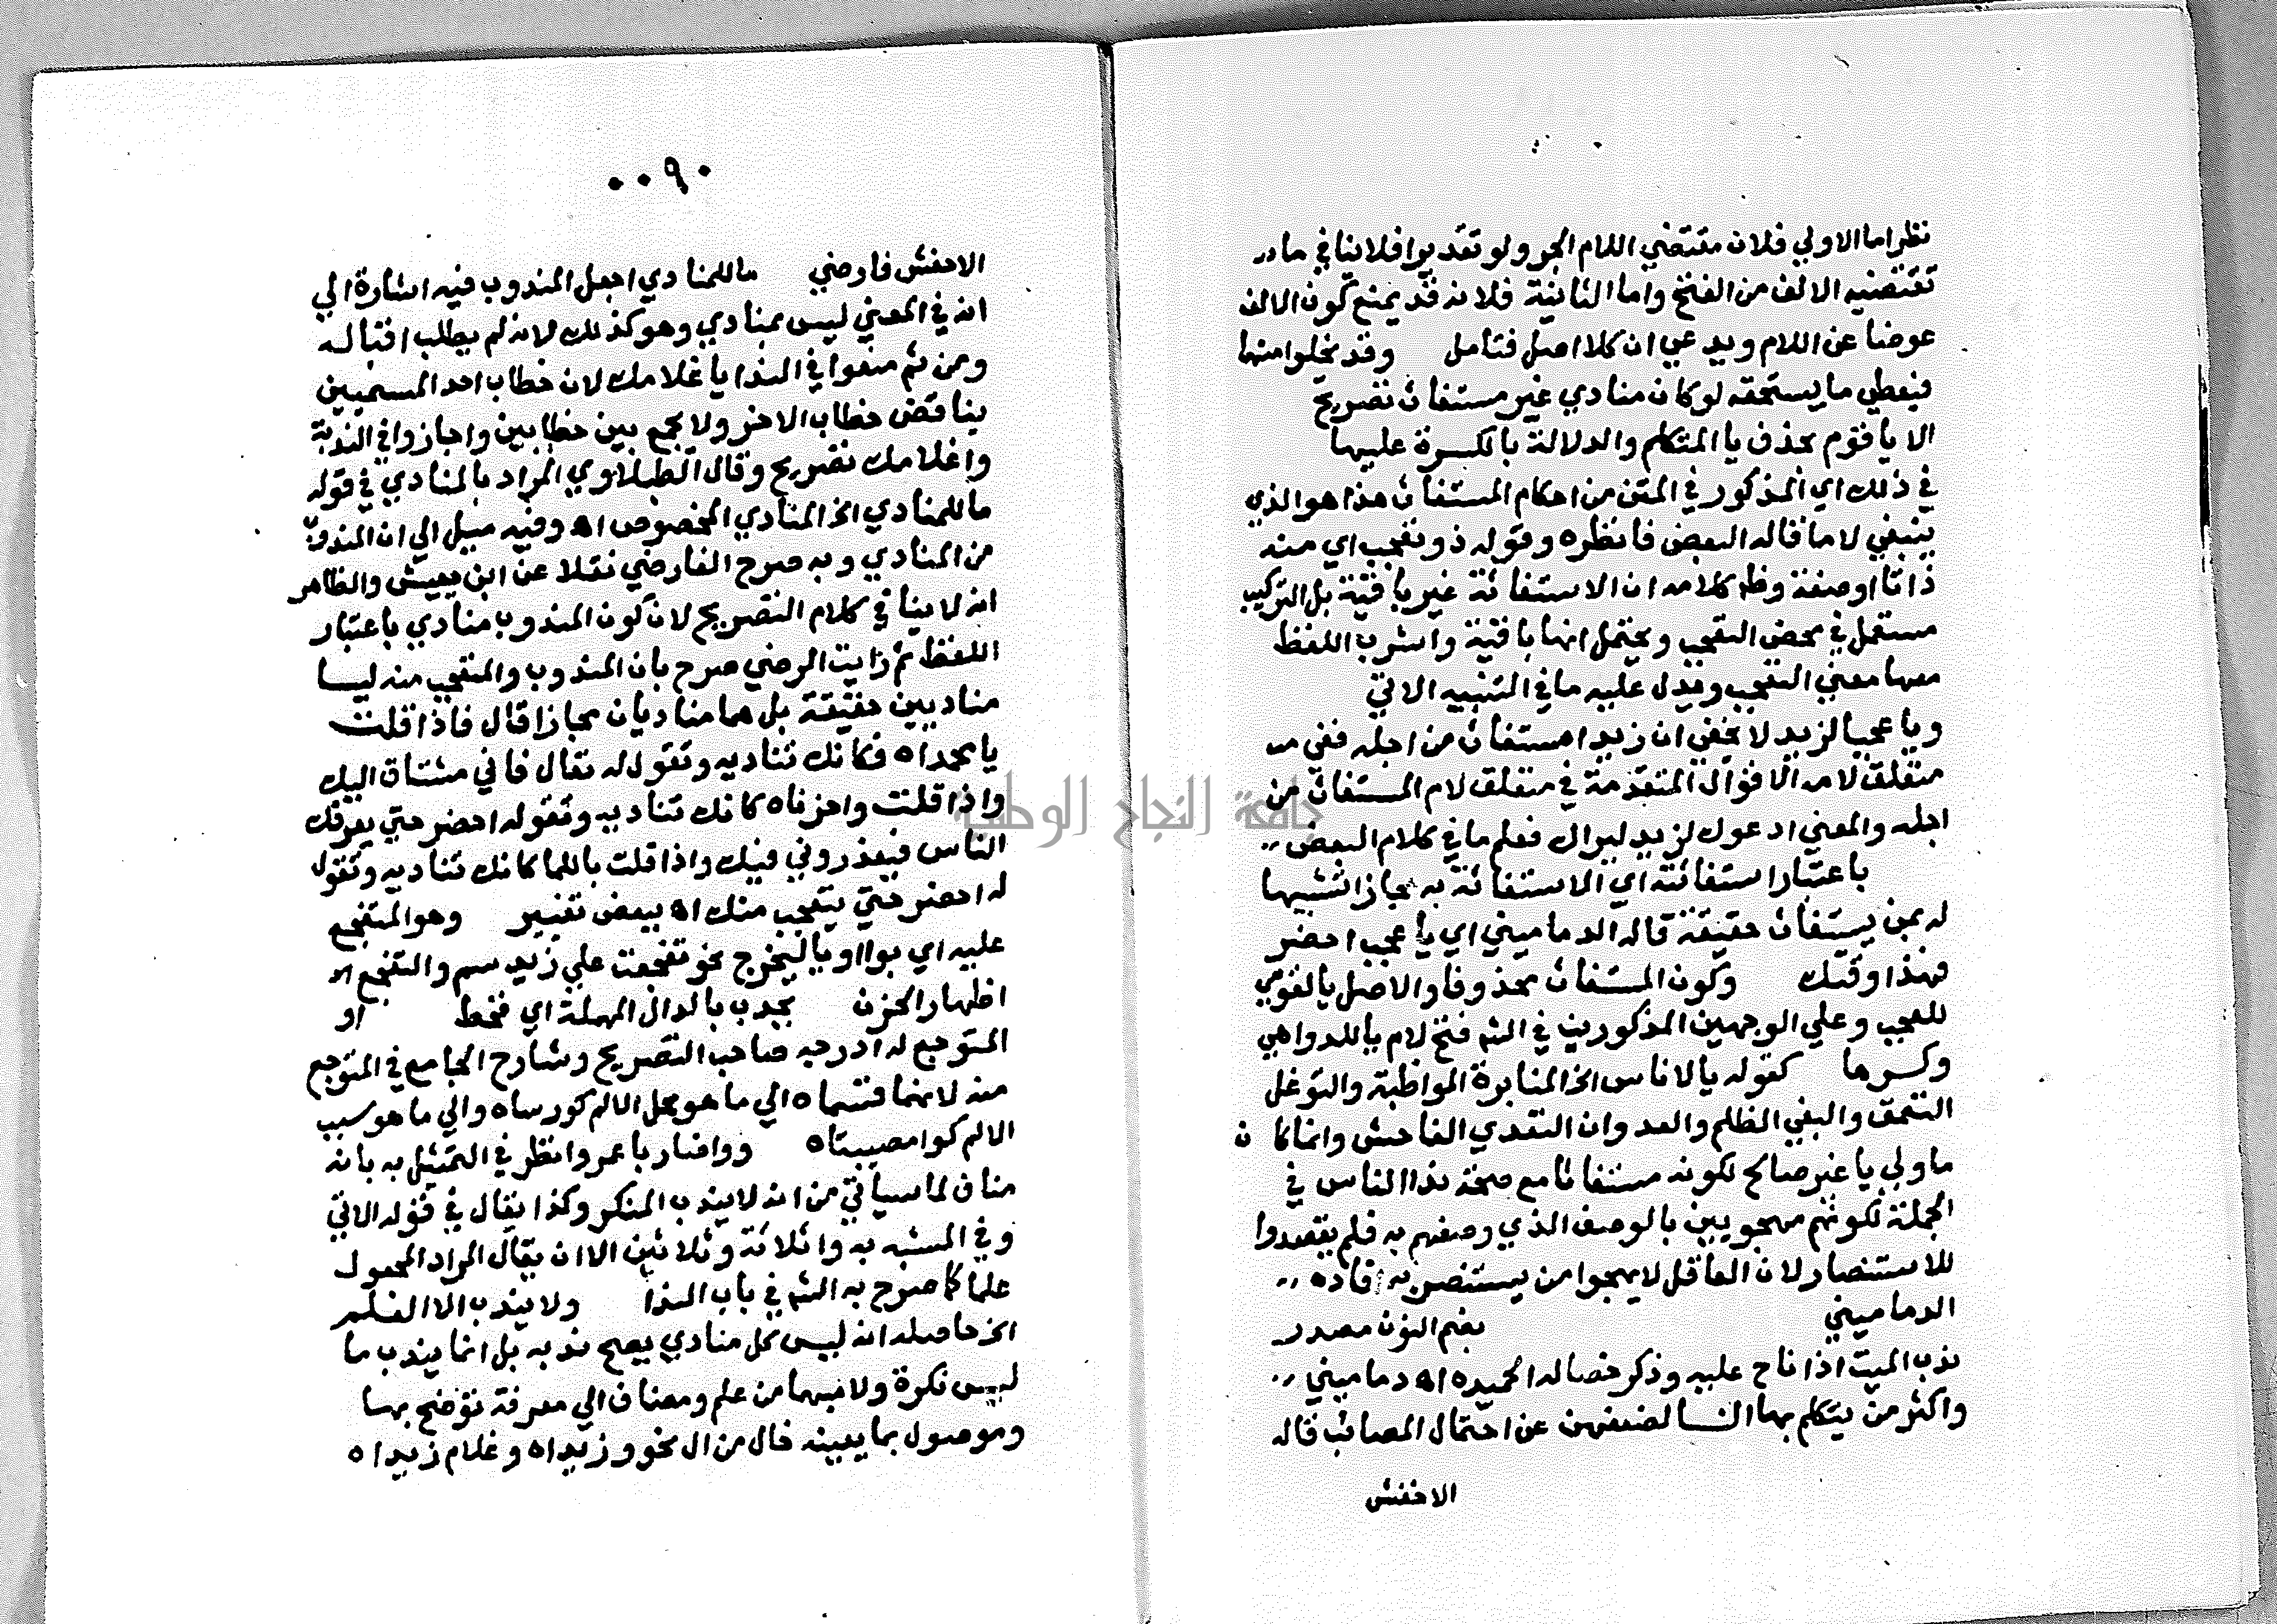 نظر اما الاولي فلان مقتضي اللام الجر ولو تقديرا فلاينافي مادر
تقتضيه الالف من الفتح واما الثانية فلانه قد يمنع كون الالف
عوضا عن اللام ويدعي ان كلا اصل فتامل وقد يخلوا منها
فيعطي ما يستحقه لو كان منادي غير مستغاث تصريح
الا يا قوم بحذف يا المتكلم والدلالة بالكسرة عليها
في ذلك اي المذكور في المتن من احكام المستغاث هذا هو الذي
ينبغي لا ما قاله البعض فانظره وقوله ذو تعجب اي منه
ذاتا او صفة وظ كلامه ان الاستغاثة غير باقية بل التركيب
مستعمل في محض التعجب ويحتمل انها باقية واشرب اللفظ
معها معني التعجب ويدل عليه ما في التنبيه الاتي
ويا عجبا لزيد لا يخفي ان زيدا مستغاث من اجله ففي
متعلق لامه الاقوال المتقدمة في متعلق لام المستغاث من
اجله والمعني ادعوك لزيد ليراك فعلم ما في كلام البعض
باعتبار استغاثته اي الاستغاثة به مجازا تشبيها
له بمن يستغاث حقيقة قاله الدماميني اي يا عجب احضر
فهذا وقتك وكون المستغاث محذوفا والاصل يالقومي
للعجب وعلي الوجهين المذكورين في الشم فتح لام ياللدواهي
وكسرها كقوله يا لاناس الخ المثابرة المواظبة والتوغل
التعمق والبغي الظلم والعدوان التعدي الفاحش وانما كان
ما ولي يا غير صالح لكونه مستغاثا مع صحة ندا الناس في
الجملة لكونهم مهجويين بالوصف الذي وصفهم به فلم يقصدوا
للاستنصار لان العاقل لا يهجوا من يستنصر به افاده
الدماميني بضم النون مصدر
ندب الميت اذا ناح عليه وذكر خصاله الحميده اه دماميني
واكثر من يتكلم بها النسا لضعفهن عن احتمال المصائب قاله
الاخفش
٠٠٩٠
الاخفش فارضي ما للمنادي اجعل المندوب فيه اشارة الي
انه في المعني ليس بمنادي وهو كذلك لانه لم يطلب اقباله
ومن ثم منعوا في الندا يا غلامك لان خطاب احد المسميين
يناقض خطاب الاخر ولا يجمع بين خطابين واجازوا في الندبة
واغلامك تصريح وقال الطبلاوي المراد بالمنادي في قوله
ما للمنادي الخ المنادي المخصوص اه وفيه ميل الي ان المندوب
من المنادي وبه صرح الفارضي نقلا عن ابن يعيش والظاهر
انه لا ينافي كلام التصريح لان كون المندوب منادي باعتبار
اللفظ ثم رايت الرضي صرح بان المندوب والمتعجب منه ليسا
مناديين حقيقة بل هما مناديان مجازا قال فاذا قلت
يا محمداه فكانك تناديه وتقول له تعال فاني مشتاق اليك
واذا قلت واحزناه كانك تناديه وتقول احضر حتي يعرفك
الناس فيعذروني فيك واذا قلت ياللما كانك تناديه وتقول
له احضر حتي يتعجب منك اه ببعض تغيير وهو المتفجع
عليه اي بوا او يا ليخرج نحو تفجعت علي زيد سم والتفجع
اظهار الحزن بجدب بالدال المهملة اي قحط او
المتوجع له ادرجه صاحب التصريح وشارح الجامع في المتوجع
منه لانهما قسماه الي ما هو محل الالم كوراساه والي ما هو سبب
الالم كوامصيبتاه ووافنا رباعمروا نظر في التمثيل به بانه
مناف لما سياتي من انه لا يندب المنكر وكذا يقال في قوله الاتي
وفي المشبه به واثلاثة وثلاثين الا ان يقال المراد المجعول
علما كما صرح به الشم في باب الندا ولا يندب الا العلم
الخ حاصله انه ليس كل منادي يصح ندبه بل انما يندب ما
ليس نكرة ولا مبهما من علم ومضاف الي معرفة توضح بها
وموصول بما يعينه خال من ال نحو وزيداه وغلام زيداه